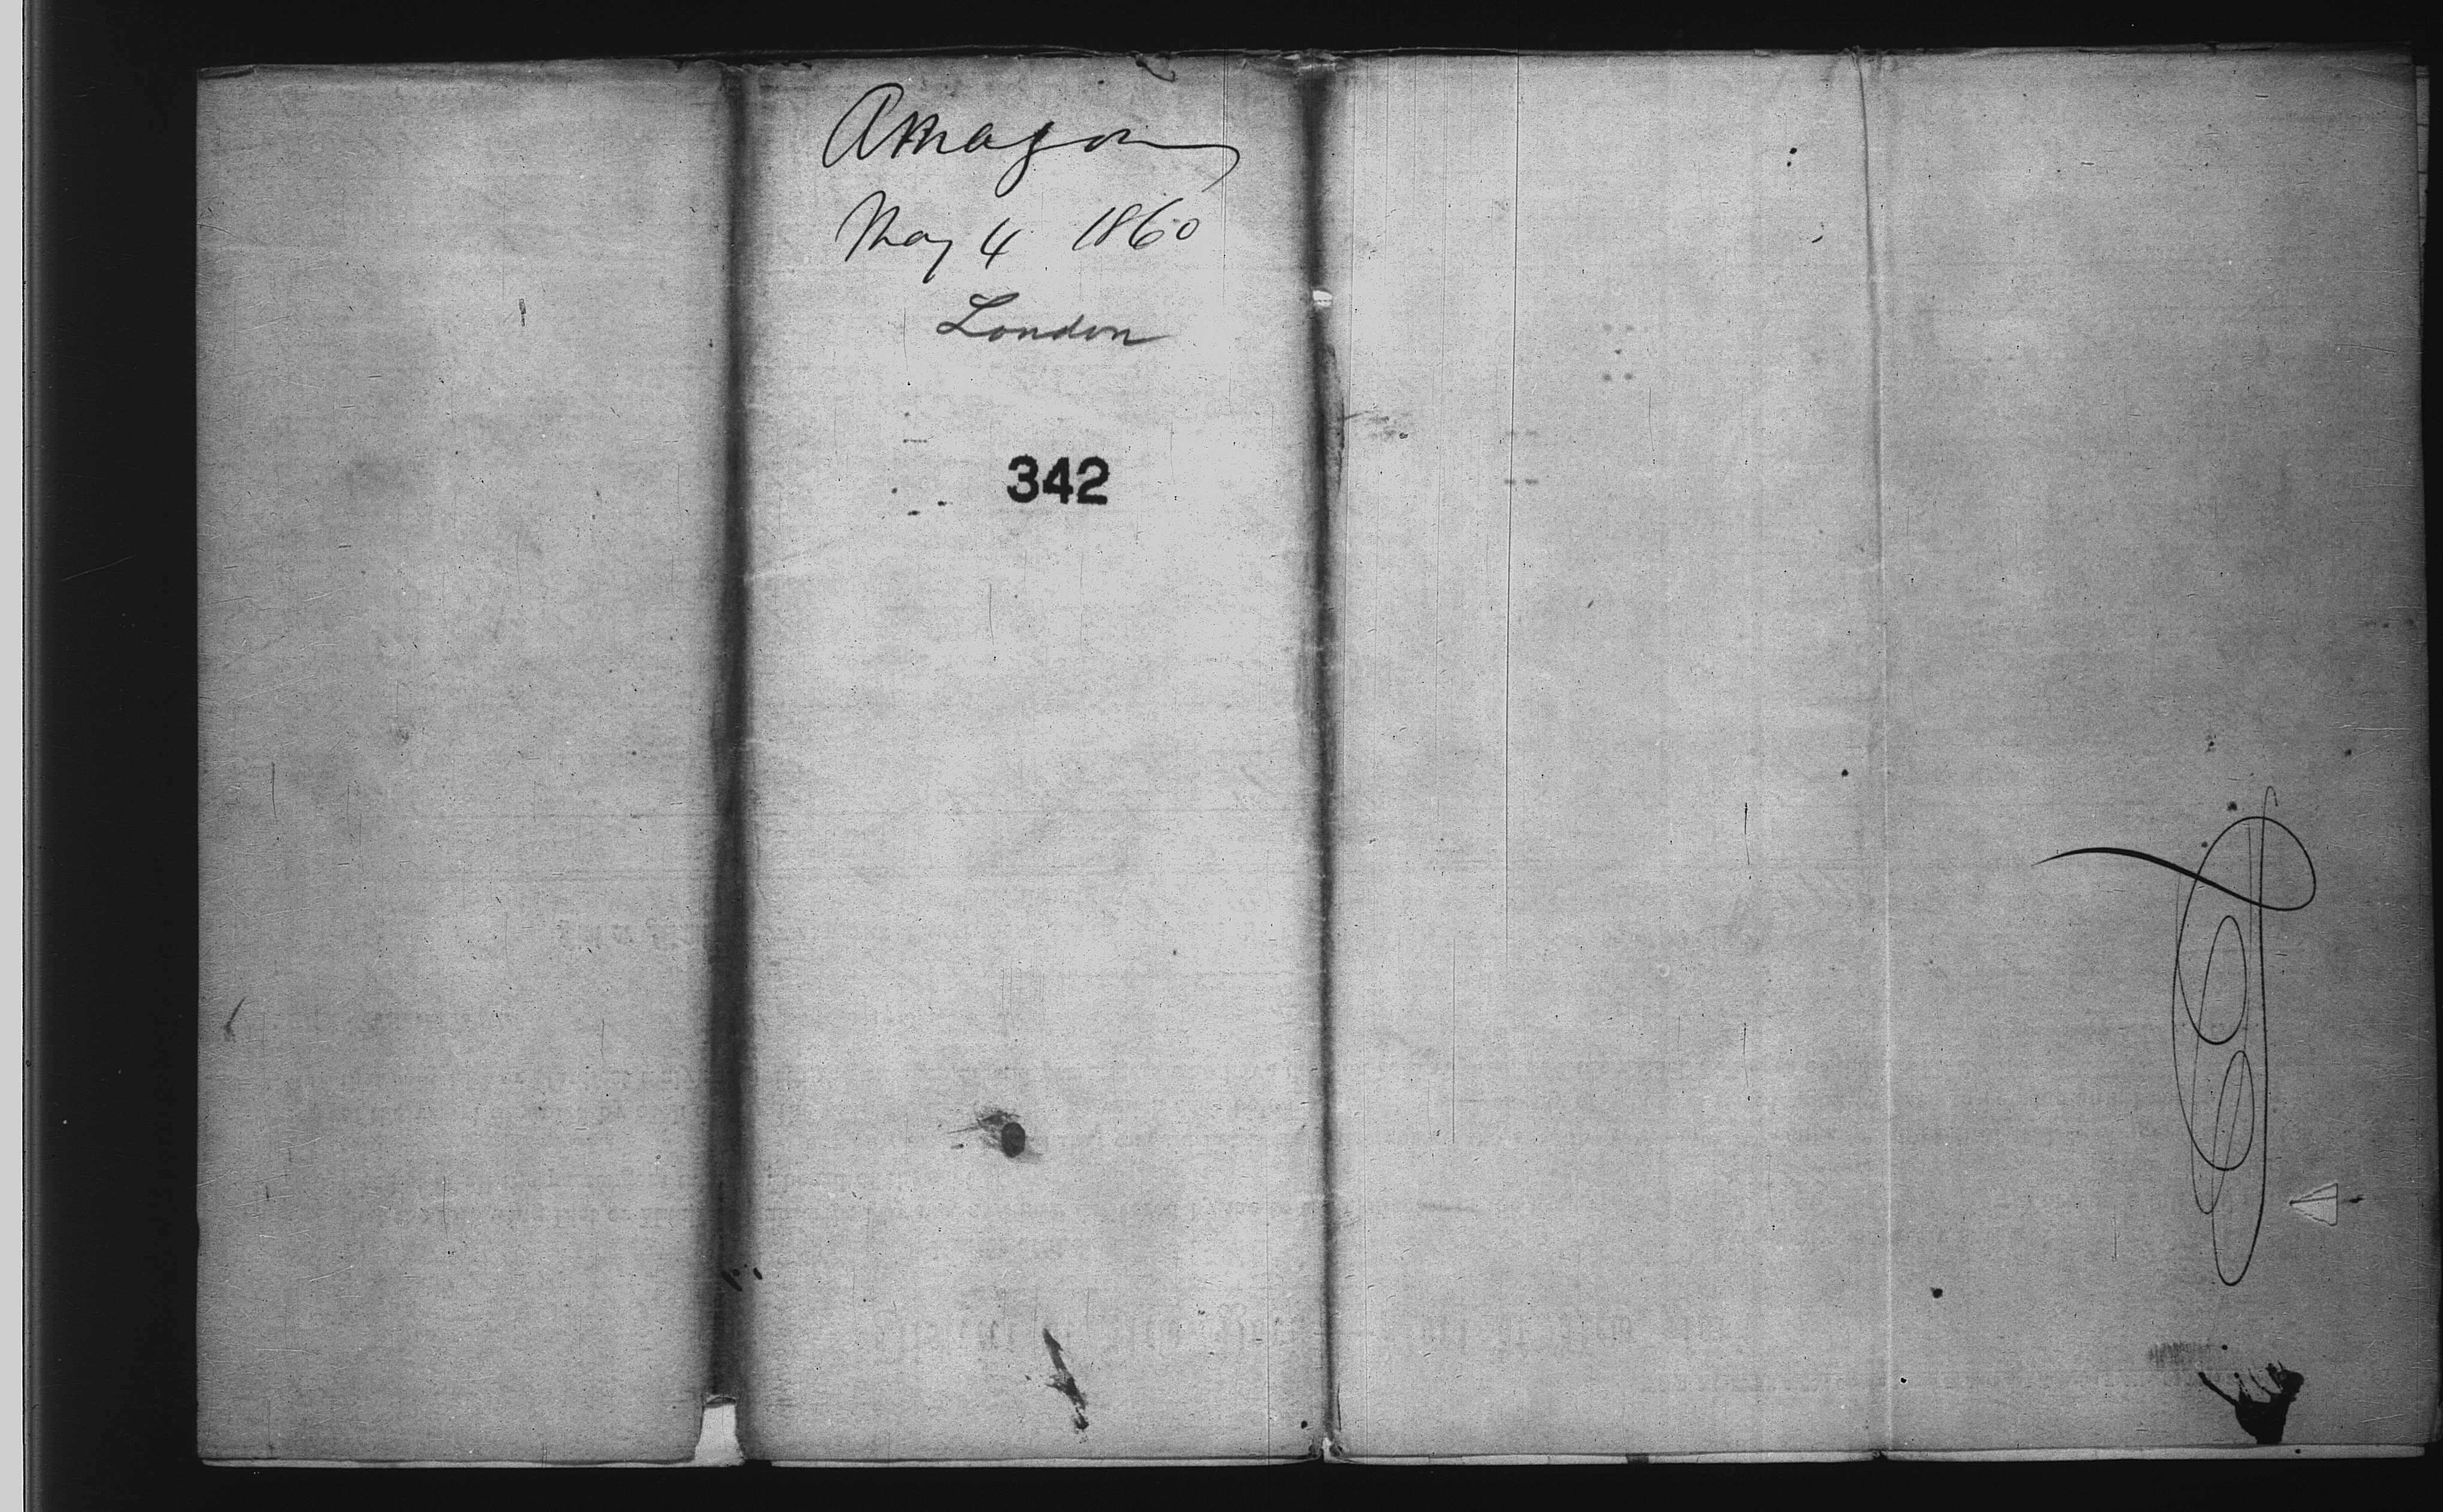 Amazon
May 4 1860
London
342